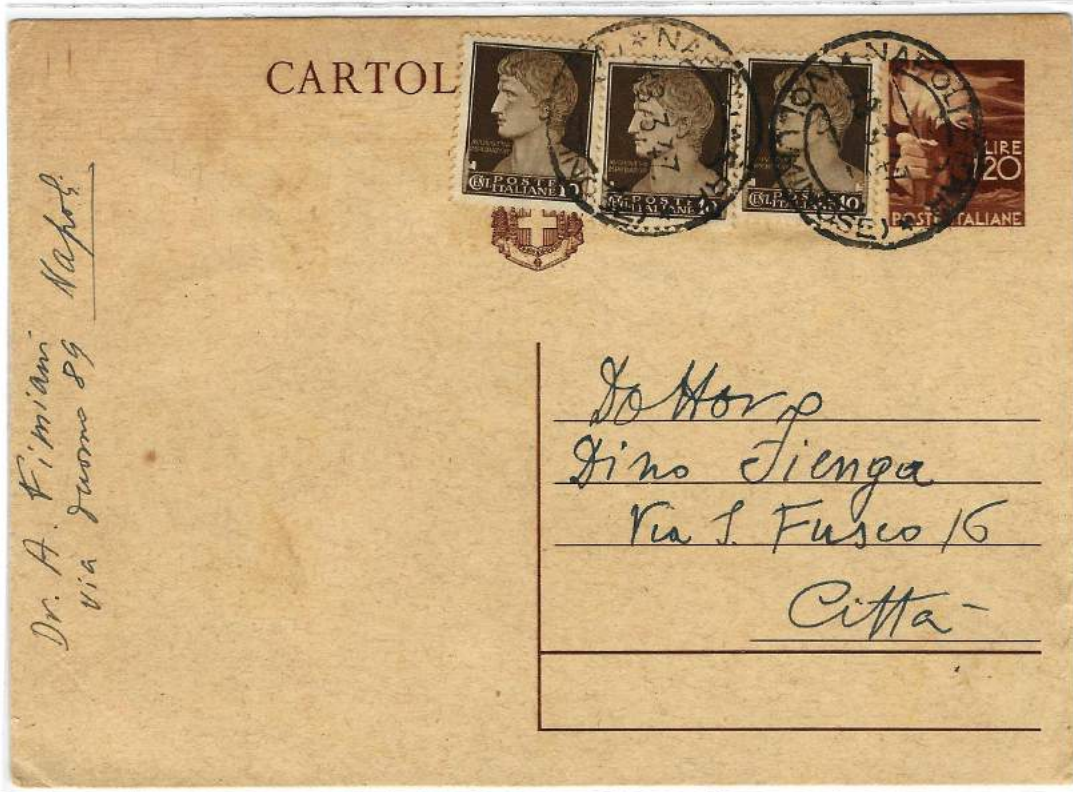 CARTOL
POSTE
ITALIANE
CENT. 10
POSTE
ITALIANE
10
POSTE
ITALIANE
CENT. 10
NAPOLI
LIRE
1,20
POSTE ITALIANE
Dr. A. Fimiani
Via Duomo 89 Napoli
Dottore
Dino Fienga
Via S. Fusco 16
Città